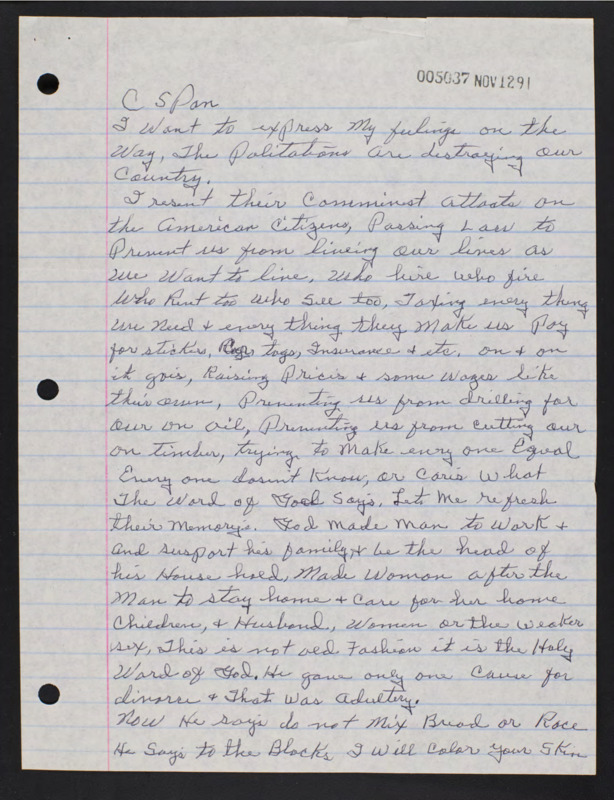 005037 NOV1291
C SPan
I Want to exPress My feelings on the
Way, The Politations are destroying our
Country.
I resent their Comminest attacts on
the American Citizens, Passing Laws to
Prevent us from liveing our lives as
We Want to live, Who hire who fire
Who Rent too Who See too, Taxing every thing
We Need & every thing they Make us Pay
for stickers, tags, Insurance & etc. on & on
it gois, Raising Prices & some Wages like
their own, Preventing us from drilling for
our on oil, Preventing us from cutting our
on timber, trying to Make every one Equal
Every one doesn't Know, or Caris What
The Word of God Say's, Let Me refresh
their Memory's. God Made Man to Work &
and support his family & be the head of
his House hold, Made Woman after the
Man to stay home & Care for her home
Children, & Husband, Women or the Weaker
sex, This is not oed Fashion it is the Holy
Word of God. He gave only one Cause for
divorce & That Was Adultery.
Now He say's do not Mix Bread or Race
He Say's to the Blacks, I Will Color Your Skin